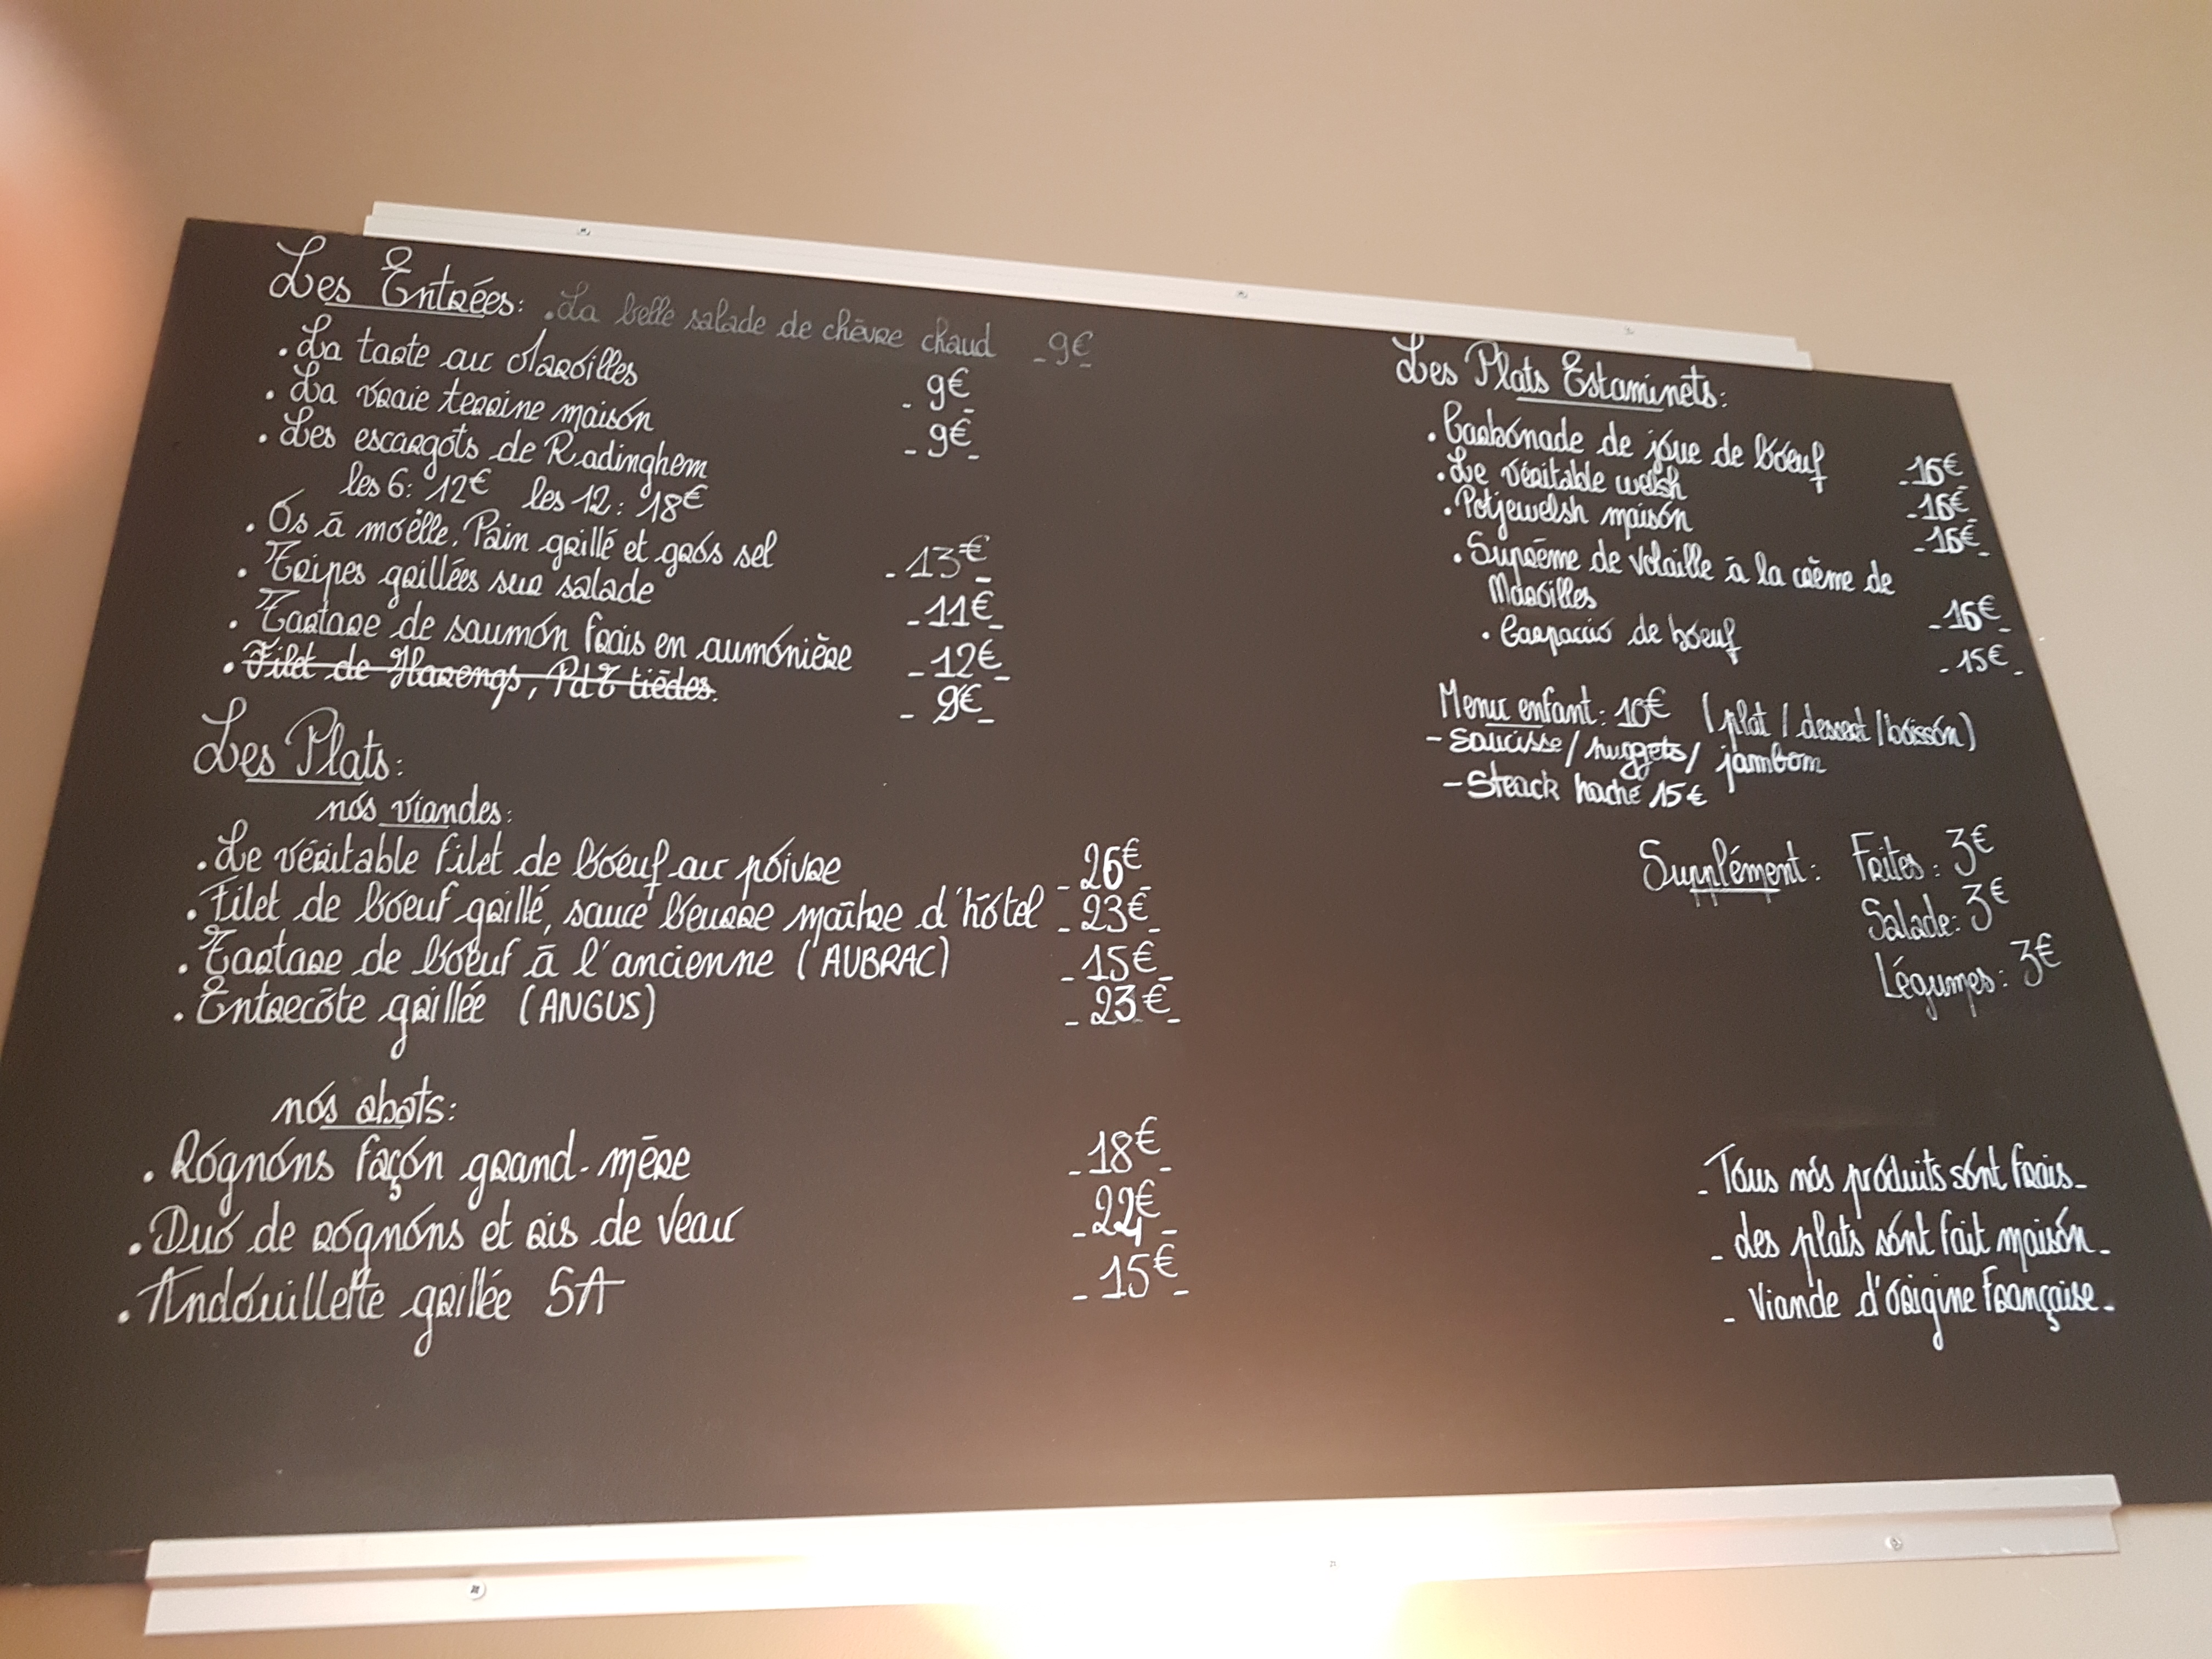 Les Entrées: .La belle salade de chèvre chaud -9€-
. La tarte au Maroilles - 9€-
. La vraie terrine maison - 9€-
. Les escargots de Radinghem
les 6: 12€ les 12: 18€
. Os à moëlle, Pain grillé et gros sel - 13€-
. Tripes grillées sur salade -11€-
. Tartare de saumon frais en aumônière -12€-
. Filet de Harengs, PdT tièdes. - 9€-
Les Plats:
nos viandes:
. Le véritable filet de boeuf au poivre - 26€-
. Filet de boeuf grillé, sauce beurre maître d'hôtel - 23€-
. Tartare de boeuf à l'ancienne (AUBRAC) -15€-
. Entrecôte grillée (ANGUS) - 23€-
nos abats:
. Rognons façon grand-mère -18€-
. Duo de rognons et ris de veau -22€-
. Andouillette grillée 5A - 15€-
Les Plats Estaminets:
. Carbonade de joue de boeuf -16€-
. Le véritable welsh -16€-
. Potjewelsh maison -16€-
. Suprême de volaille à la crème de
Maroilles -16€-
. Carpaccio de boeuf -15€-
Menu enfant: 10€ (plat / dessert / boisson)
- saucisse / nuggets / jambom
- Steack haché 15€
Supplément: Frites: 3€
Salade: 3€
Légumes: 3€
- Tous nos produits sont frais-
- des plats sont fait maison-
- Viande d'origine Française-